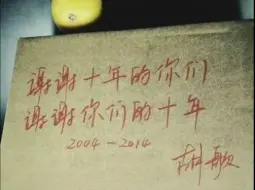 谢谢十年的你们
谢谢你们的十年
2004-2014
胡歌